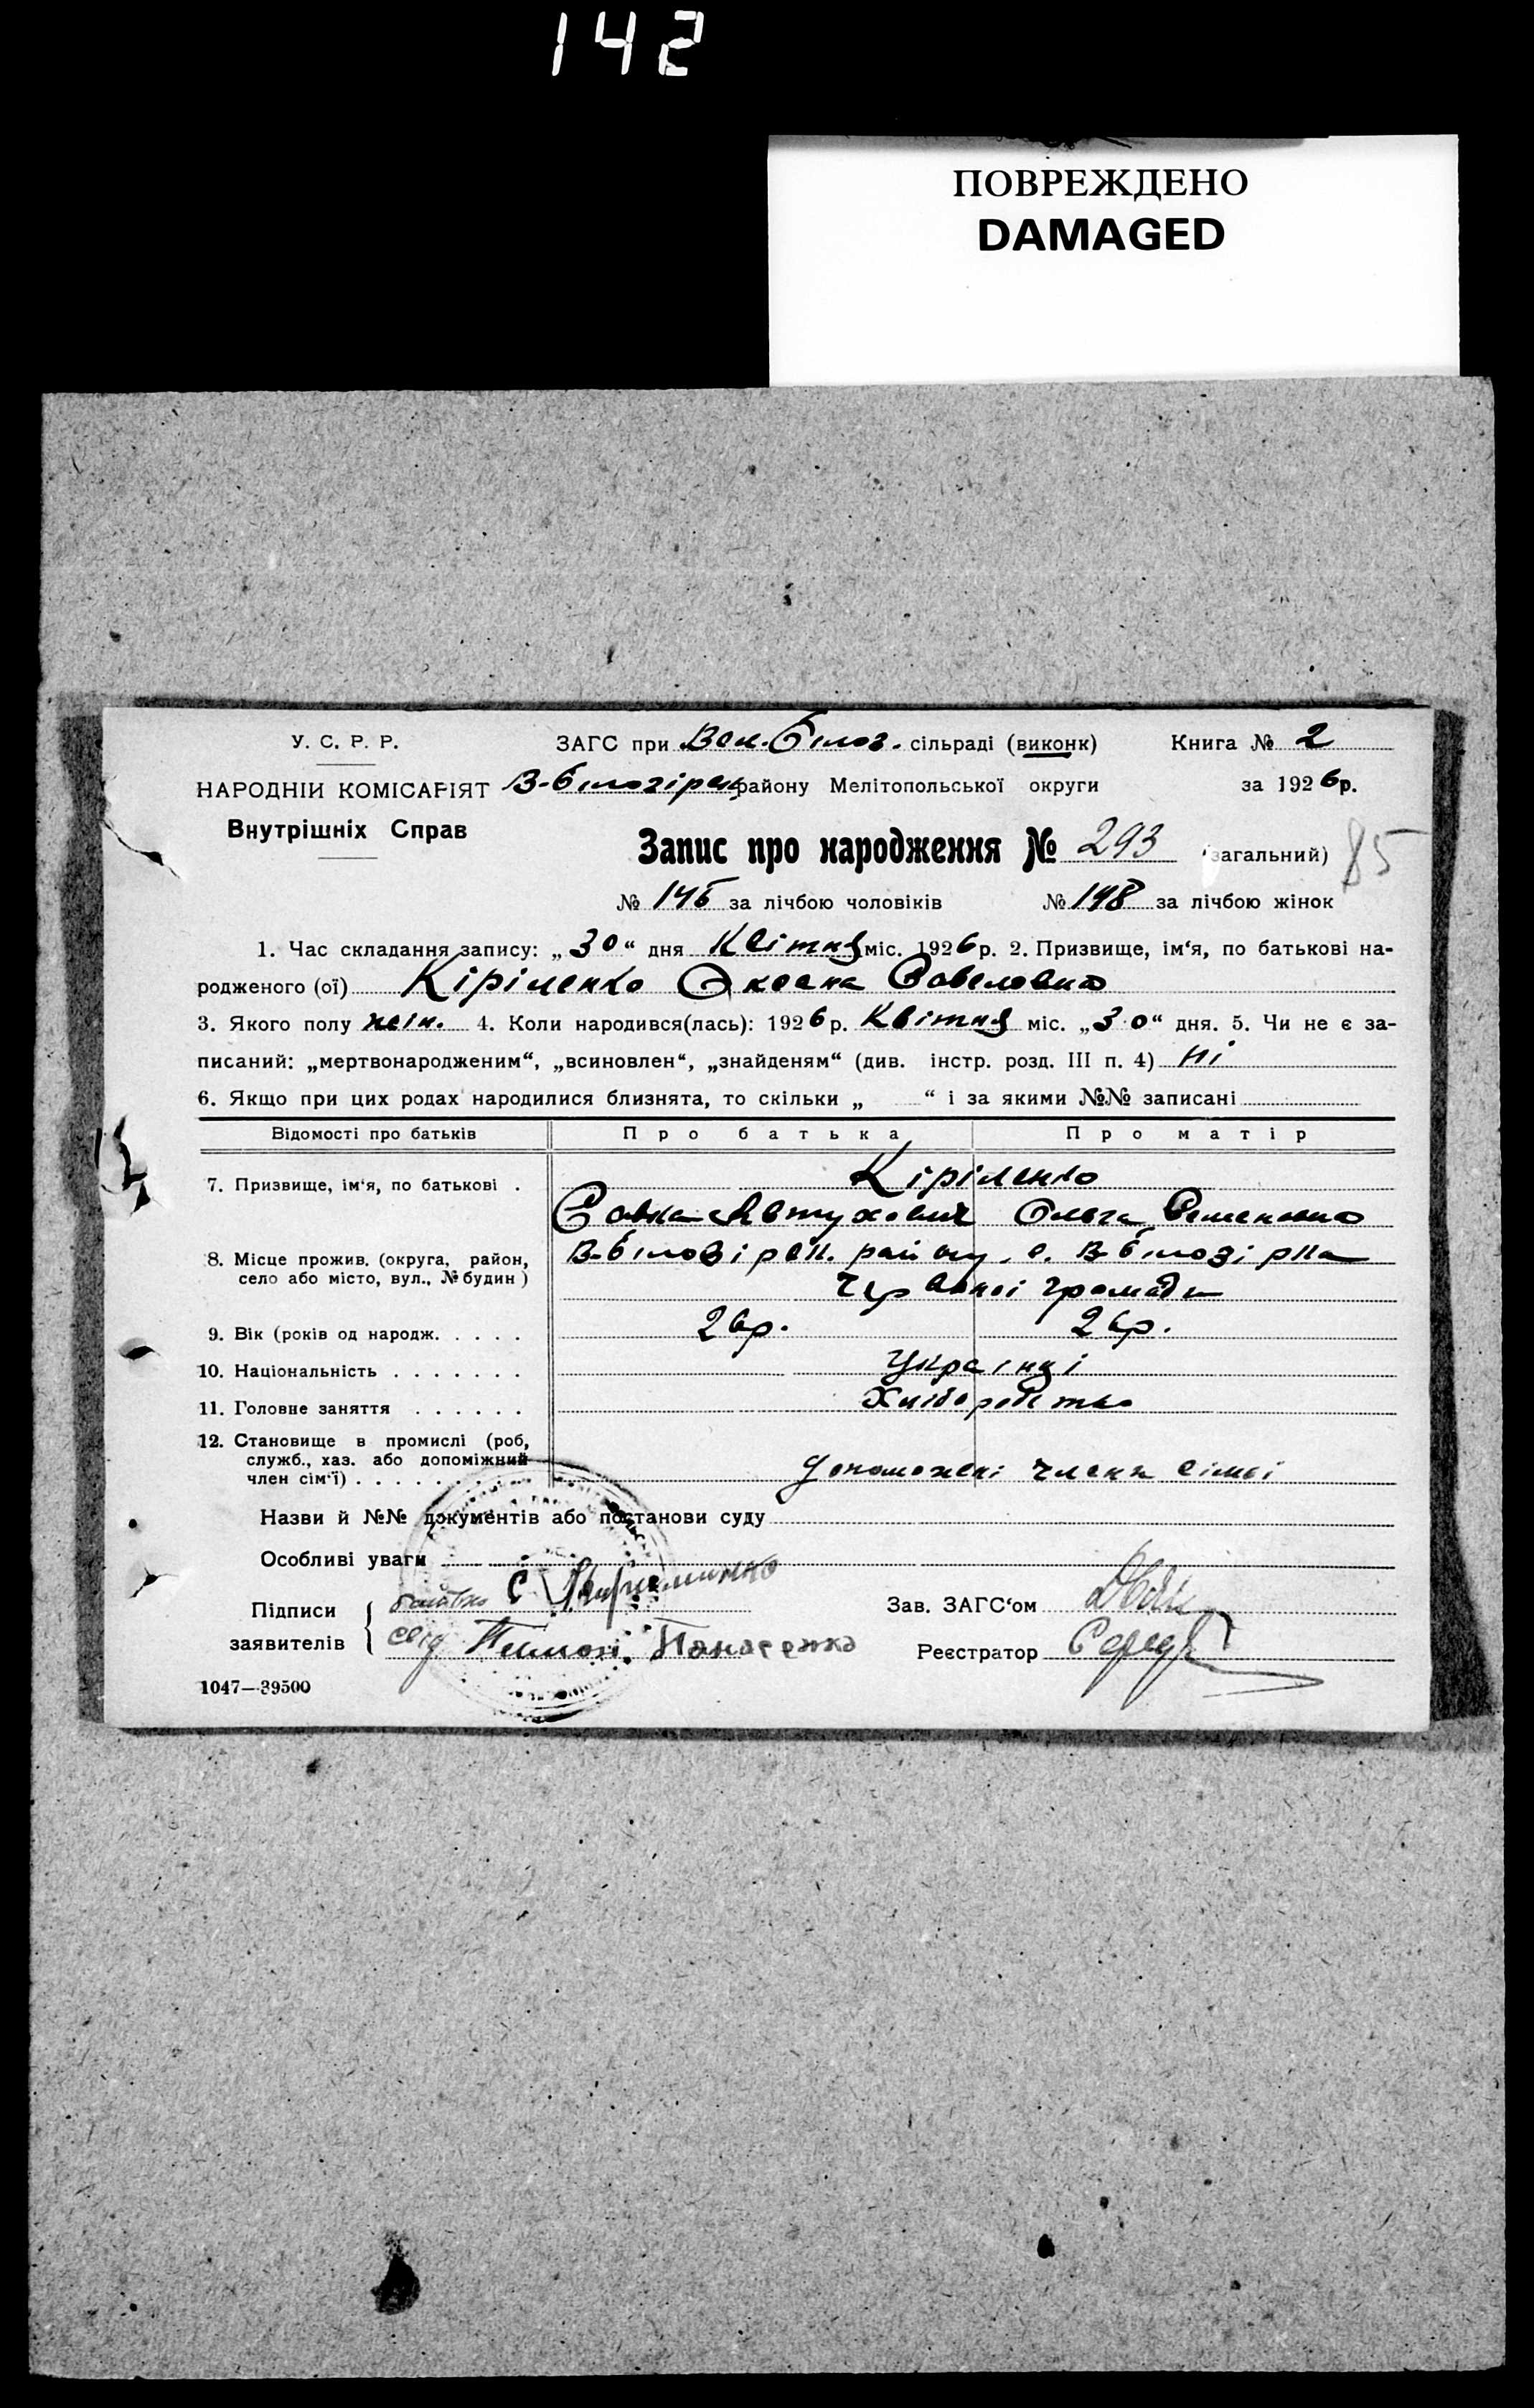 142
ПОВРЕЖДЕНО
DAMAGED
У. С. Р. Р. ЗАГС при Вел.-Білоз. сільраді (виконк) Книга № 2
НАРОДНІЙ КОМІСАРІЯТ В-білозірськ району Мелітопольської округи за 1926р.
Внутрішніх Справ
Запис про народження № 293 (загальний) 85
№ 145 за лічбою чоловіків № 148 за лічбою жінок
1. Час складання запису: „30“ дня Квітня міс. 1926р. 2. Призвище, ім‘я, по батькові на-
родженого (ої) Кіріленко Оксана Савеловна
3. Якого полу жін. 4. Коли народився(лась): 1926р. Квітня міс. „30“ дня. 5. Чи не є за-
писаний: „мертвонародженим“, „всиновлен“, „знайденям“ (див. інстр. розд. III п. 4) ні
6. Якщо при цих родах народилися близнята, то скільки „ “ і за якими №№ записані
Відомості про батьків Про батька Про матір
Кіріленко
7. Призвище, ім‘я, по батькові .
Савка Автухович Ольга Семеновна
8. Місце прожив. (округа, район, В-білозірськ. району, с. В-білозірка
село або місто, вул., № будин)
Червоної громади
9. Вік (років од народж. . . . . 26р. 26р.
10. Національність . . . . . . . Українці
11. Головне заняття . . . . . . Хліборобство
12. Становище в промислі (роб,
служб., хаз. або допоміжний
член сім‘ї) . . . . . . . . Допоможені члени сімьї
Назви й №№ документів або постанови суду
Особливі уваги
Підписи батько С Кириленко Зав. ЗАГС‘ом
заявителів свід Панасенко Реєстратор Серед
1047—39500